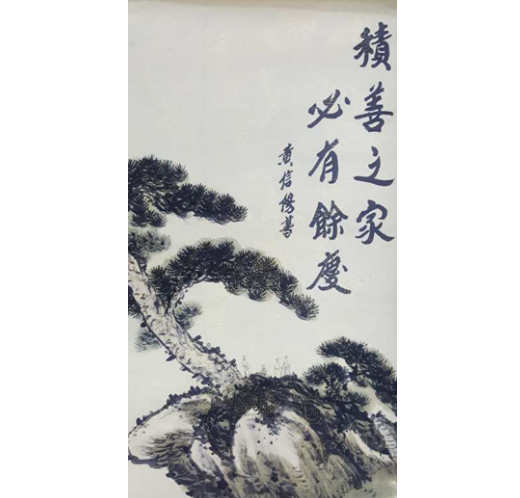 積善之家
必有餘慶
黄信陽書